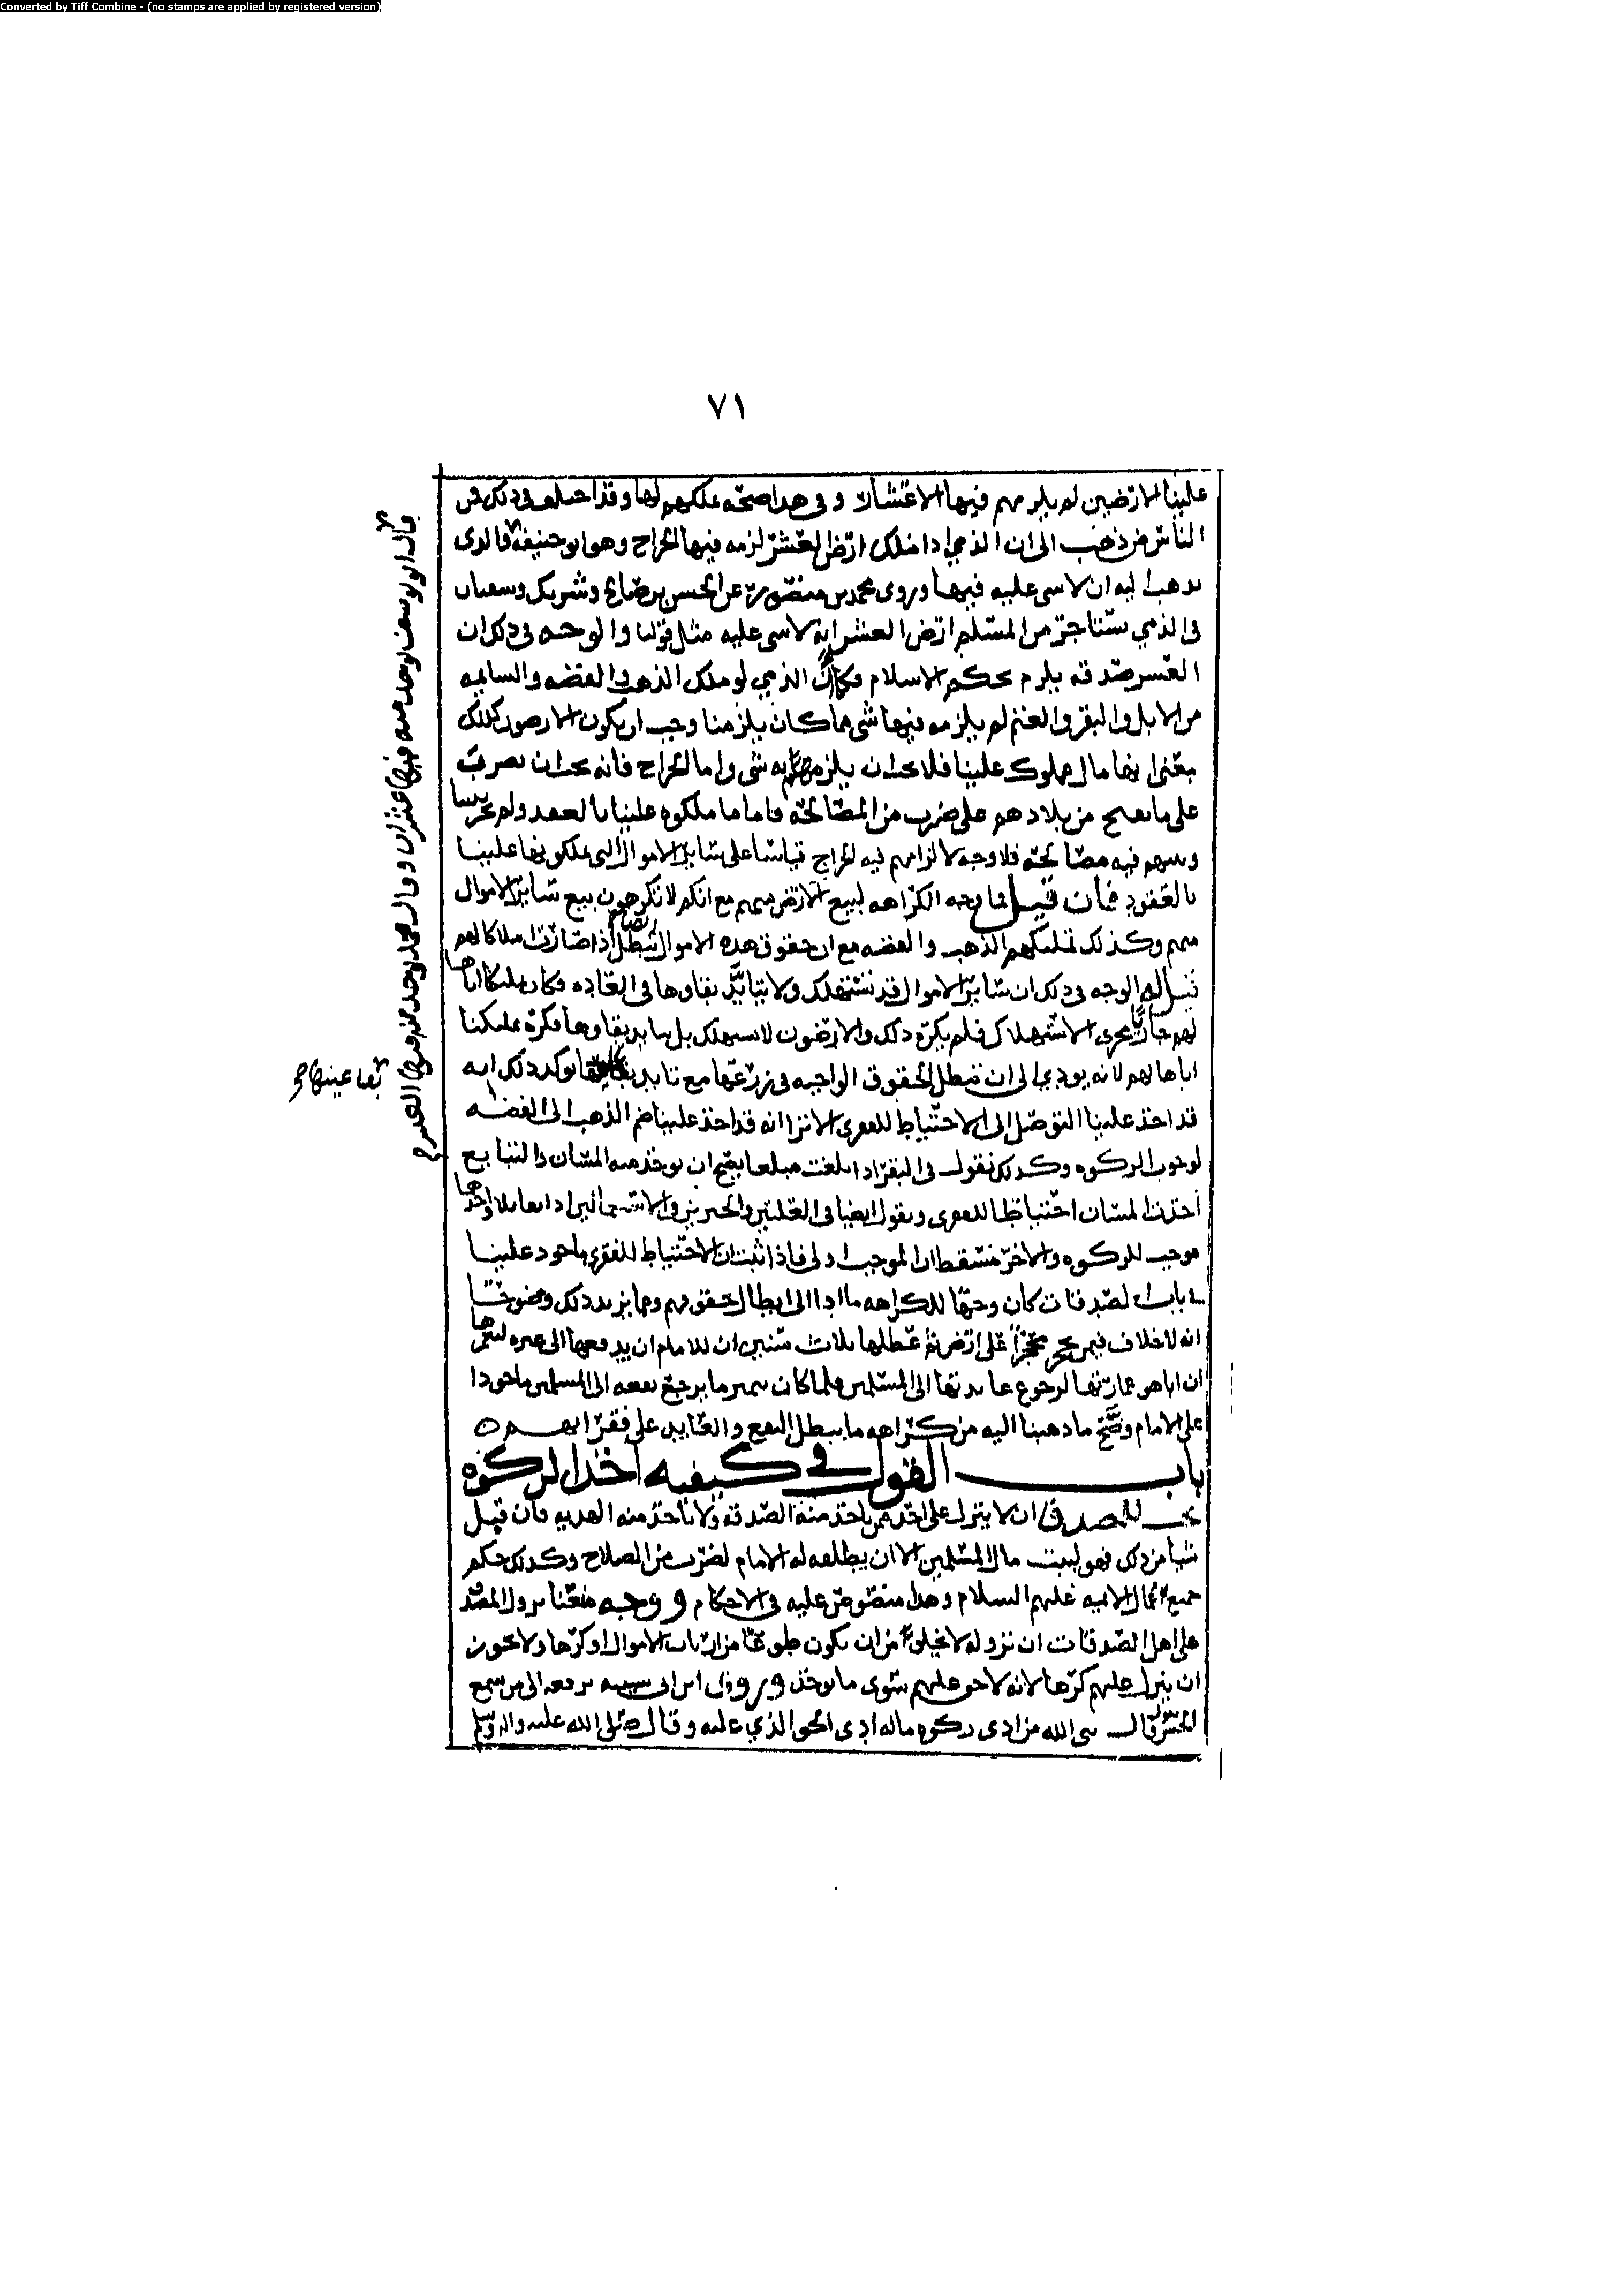 Converted by Tiff Combine - (no stamps are applied by registered version)
٧١
علينا الارضين لم يلزمهم فيها الاعشار وفي هذا صحة ملكهم لها وقد اختلف في ذلك من
الناس من ذهب الى ان الذمي اذا ملك ارض العشر لزمه فيها الخراج وهو ابو حنيفة والذي
يذهب اليه ان لا شي عليه فيها وروى محمد بن منصور عن الحسن بن صالح وشريك وسفيان
في الذمي يستاجر من المسلم ارض العشر انه لا شي عليه مثل قولنا والوجه في ذلك ان
العشر صدقه يلزم بحكم الاسلام فكما ان الذمي لو ملك الذهب والفضه والسايمه
من الابل والبقر والغنم لم يلزمه فيها شي مما كان يلزمنا وجب ان يكون الارضون كذلك
بمعنى انها مال مملوك علينا فلا يجب ان يلزمهم به شي واما الخراج فانه يجب ان يضرب
على ما يفتح من بلادهم على ضرب من المصالحة فاما ما ملكوه علينا بالعقد ولم يجر بيننا
وبينهم فيه مصالحة فلا وجه لالزامهم فيه الخراج قياسا على ساير الاموال التي يملكونها علينا
بالعقود فان قيل فما وجه الكراهه لبيع الارض منهم مع انكم لا تكرهون بيع ساير الاموال
منهم وكذلك تمليكهم الذهب والفضه مع ان حقوق هذه الاموال تبطل ايضا اذا صارت املاكا لهم
قيل له الوجه في ذلك ان ساير الاموال قد تستهلك ولا يتابد بقاوها في العاده فكان تمليكنا اياها
لهم جاريا مجرى الاستهلاك فلم يكره ذلك والارضون لا تستهلك بل يتابد بقاوها فكره تمليكنا
اياها لهم لانه يودي الى ان تبطل الحقوق الواجبه في زرعها مع تابد بقائها يوكد ذلك انه
قد اخذ علينا التوصل الى الاحتياط للفقرى الا ترا انه قد اخذ علينا ضم الذهب الى الفضه
لوجوب الزكوه وكذلك نقول في البقر اذا بلغت مبلغا يصح ان يوخذ منه المسان والتبابيع
اخذت المسان احتياطا للفقرى ونقول ايضا في العلتين والخبرين والاثنين اذا تقابلا واحدها
موجب للزكوه والاخر مسقط ان الموجب اولى فاذا ثبت ان الاحتياط للفقرى ماخوذ علينا
في باب الصدقات كان وجها للكراهه ما ادا الى ابطال حقوقهم ومما يزيد ذلك وضوحا
انه لا خلاف فيمن تحجر محجرا على ارض ثم عطلها ثلاث سنين ان للامام ان يدفعها الى غيره ليعمرها
ان اباهو عمارتها لرجوع عايدتها الى المسلمين فلما كان تثمير ما يرجع نفعه الى المسلمين ماخوذا
على الامام وضح ما ذهبنا اليه من كراهه ما يبطل النفع والعايد على فقرايهم ه
باب القول في كيفيه اخذ الزكوه
يجب للمصدق ان لا ينزل على احد ممن ياخذ منه الصدقه ولا ياخذ منه الهديه فان قبل
شيا من ذلك فهو لبيت مال المسلمين الا ان يطلعه له الامام لضرب من الصلاح وكذلك حكم
جميع عمال الايمه عليهم السلام وهذا منصوص عليه في الاحكام ووجه منعنا نزول المصدق
على اهل الصدقات ان نزوله لا يخلوا من ان يكون طوعا من ارباب الاموال او كرها ولا يجوز
ان ينزل عليهم كرها لانه لا حق عليهم سوى ما يوخذ وروى ابن ابي شيبه يرفعه الى من سمع
الحسن قال قال نبي الله من ادى زكوه ماله ادى الحق الذي عليه وقال صلى الله عليه واله وسلم
قال ابو يوسف يوخذ منه فيها عشران وقال محمد يوخذ منه فيها العشر
بقا عينها